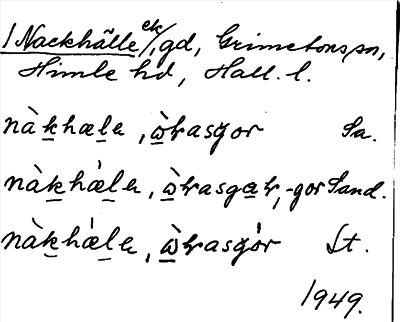 1 Nackhälle ek/, gd, Grimetons sn,
Himle hd, Hall. l.
nàkhælɐ, ὼꝛasgor Sa.
nàkhǽlɐ, ὼꝛasgaꝛ, -gor Sand.
nàkhǽlɐ, ὼꝛasgór St.
1949.